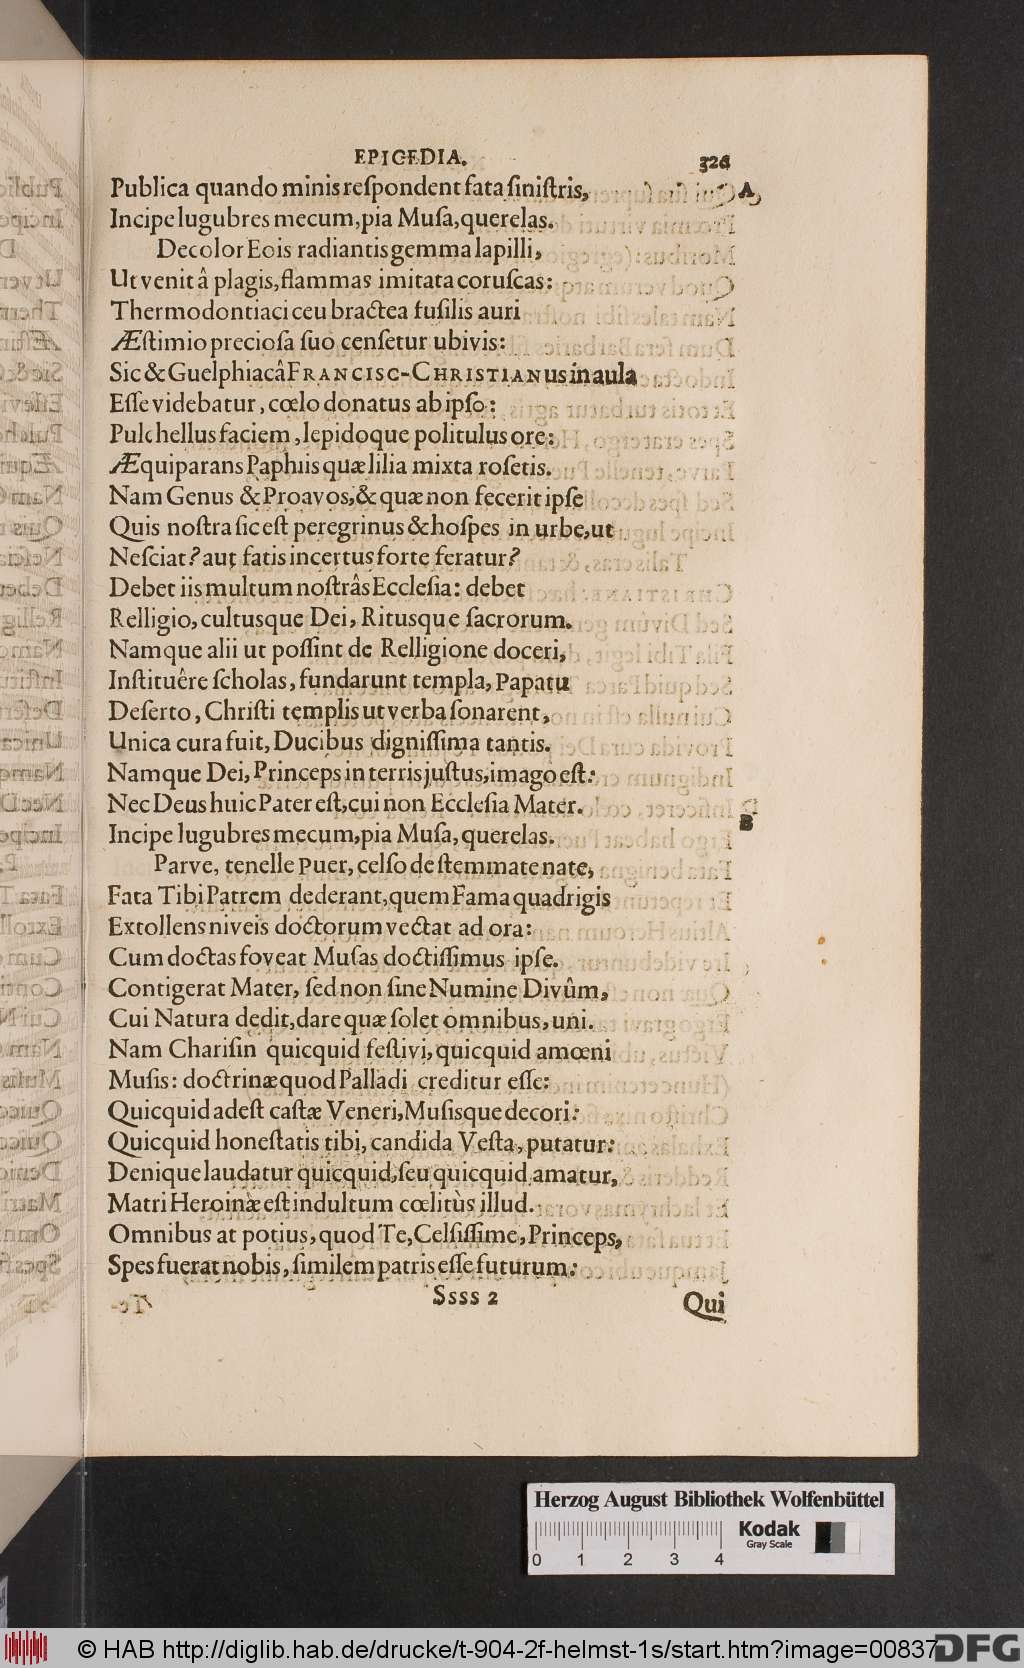 EPICEDIA.
326
Publica quando minis reſpondent fata ſiniſtris,
A
Incipe lugubres mecum, pia Muſa, querelas.
Decolor Eois radiantis gemma lapilli,
Ut venit â plagis, flammas imitata coruſcas:
Thermodontiaci ceu bractea fuſilis auri
Æſtimio precioſa ſuo cenſetur ubivis:
Sic & Guelphiacâ FRANCISC-CHRISTIANus in aula
Eſſe videbatur, cœlo donatus ab ipſo:
Pulchellus faciem, lepidoque politulus ore:
Æquiparans Paphiis quæ lilia mixta roſetis.
Nam Genus & Proavos, & quæ non fecerit ipſe
Quis noſtra ſic eſt peregrinus & hoſpes in urbe, ut
Neſciat? aut fatis incertus forte feratur?
Debet iis multum noſtrâs Eccleſia: debet
Relligio, cultusque Dei, Ritusque ſacrorum.
Namque alii ut poſſint de Relligione doceri,
Inſtituêre ſcholas, fundarunt templa, Papatu
Deſerto, Chriſti templis ut verba ſonarent,
Unica cura fuit, Ducibus digniſſima tantis.
Namque Dei, Princeps in terris juſtus, imago eſt:
Nec Deus huic Pater eſt, cui non Eccleſia Mater.
B
Incipe lugubres mecum, pia Muſa, querelas.
Parve, tenelle Puer, celſo de ſtemmate nate,
Fata Tibi Patrem dederant, quem Fama quadrigis
Extollens niveis doctorum vectat ad ora:
Cum doctas foveat Muſas doctiſſimus ipſe.
Contigerat Mater, ſed non ſine Numine Divûm,
Cui Natura dedit, dare quæ ſolet omnibus, uni.
Nam Chariſin quicquid feſtivi, quicquid amœni
Muſis: doctrinæ quod Palladi creditur eſſe:
Quicquid adeſt caſtæ Veneri, Muſisque decori:
Quicquid honeſtatis tibi, candida Veſta, putatur:
Denique laudatur quicquid, ſeu quicquid amatur,
Matri Heroinæ eſt indultum cœlitùs illud.
Omnibus at potius, quod Te, Celſiſſime, Princeps,
Spes fuerat nobis, ſimilem patris eſſe futurum:
Ssss 2
Qui
Herzog August Bibliothek Wolfenbüttel
0 1 2 3 4
Kodak
Gray Scale
© HAB http://diglib.hab.de/drucke/t-904-2f-helmst-1s/start.htm?image=00837
DFG